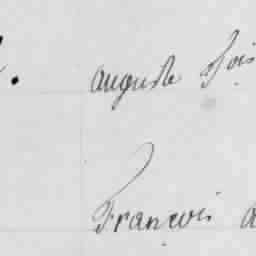 auguste
François a